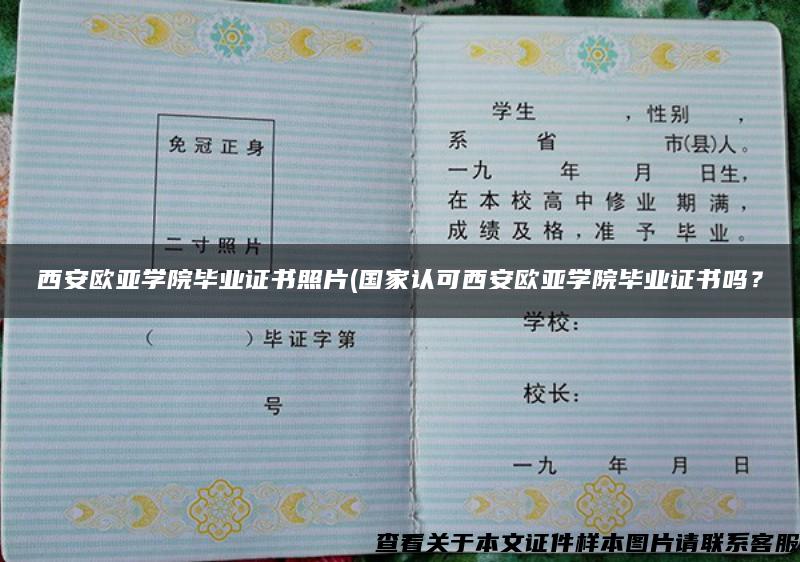 免冠正身
二寸照片
( )毕证字第
号
学生 ，性别 ，
系 省 市(县)人。
一九 年 月 日生，
在本校高中修业期满，
成绩及格，准予毕业。
西安欧亚学院毕业证书照片(国家认可西安欧亚学院毕业证书吗？
学校：
校长：
一九 年 月 日
查看关于本文证件样本图片请联系客服